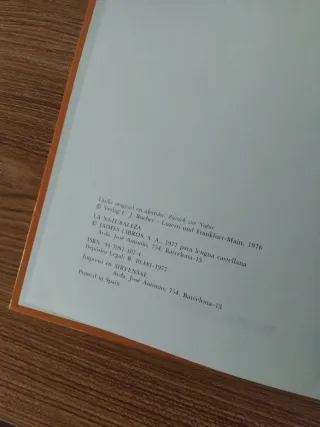 Título original en alemán: Zurück zur Natur
© Verlag C. J. Bucher - Luzern und Frankfurt-Main, 1976
LA NATURALEZA
© JAIMES LIBROS, S. A., 1977 para lengua castellana
Avda. José Antonio, 754, Barcelona-13
ISBN 84-7091-107-4
Depósito Legal: B. 10.981-1977
Impreso en SIRVENSAE
Avda. José Antonio, 754, Barcelona-13
Printed in Spain